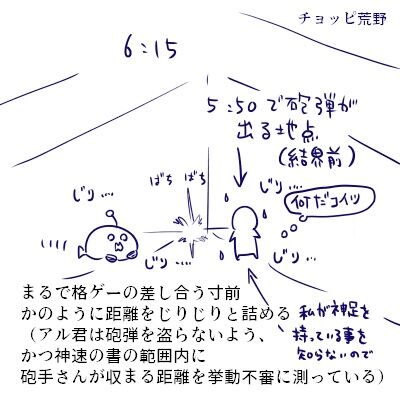 チョッピ荒野
6:15
5:50で砲弾が
出る地点
(結界前)
じり…
ばち ばち
じり…
何だコイツ
じり…
じり…
まるで格ゲーの差し合う寸前
かのように距離をじりじりと詰める
(アル君は砲弾を盗らないよう、
かつ神速の書の範囲内に
砲手さんが収まる距離を挙動不審に測っている)
私が神足を
持っている事を
知らないので